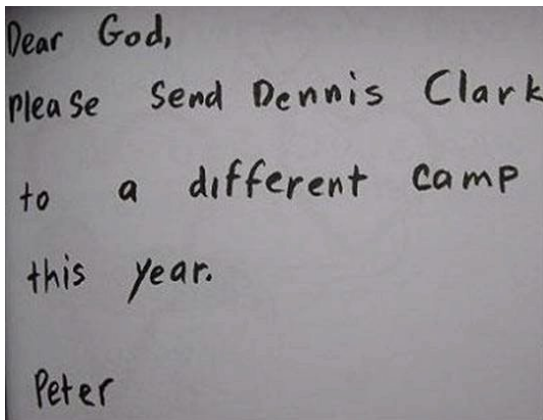 Dear God,
Please Send Dennis Clark
to a different camp
this year.
Peter